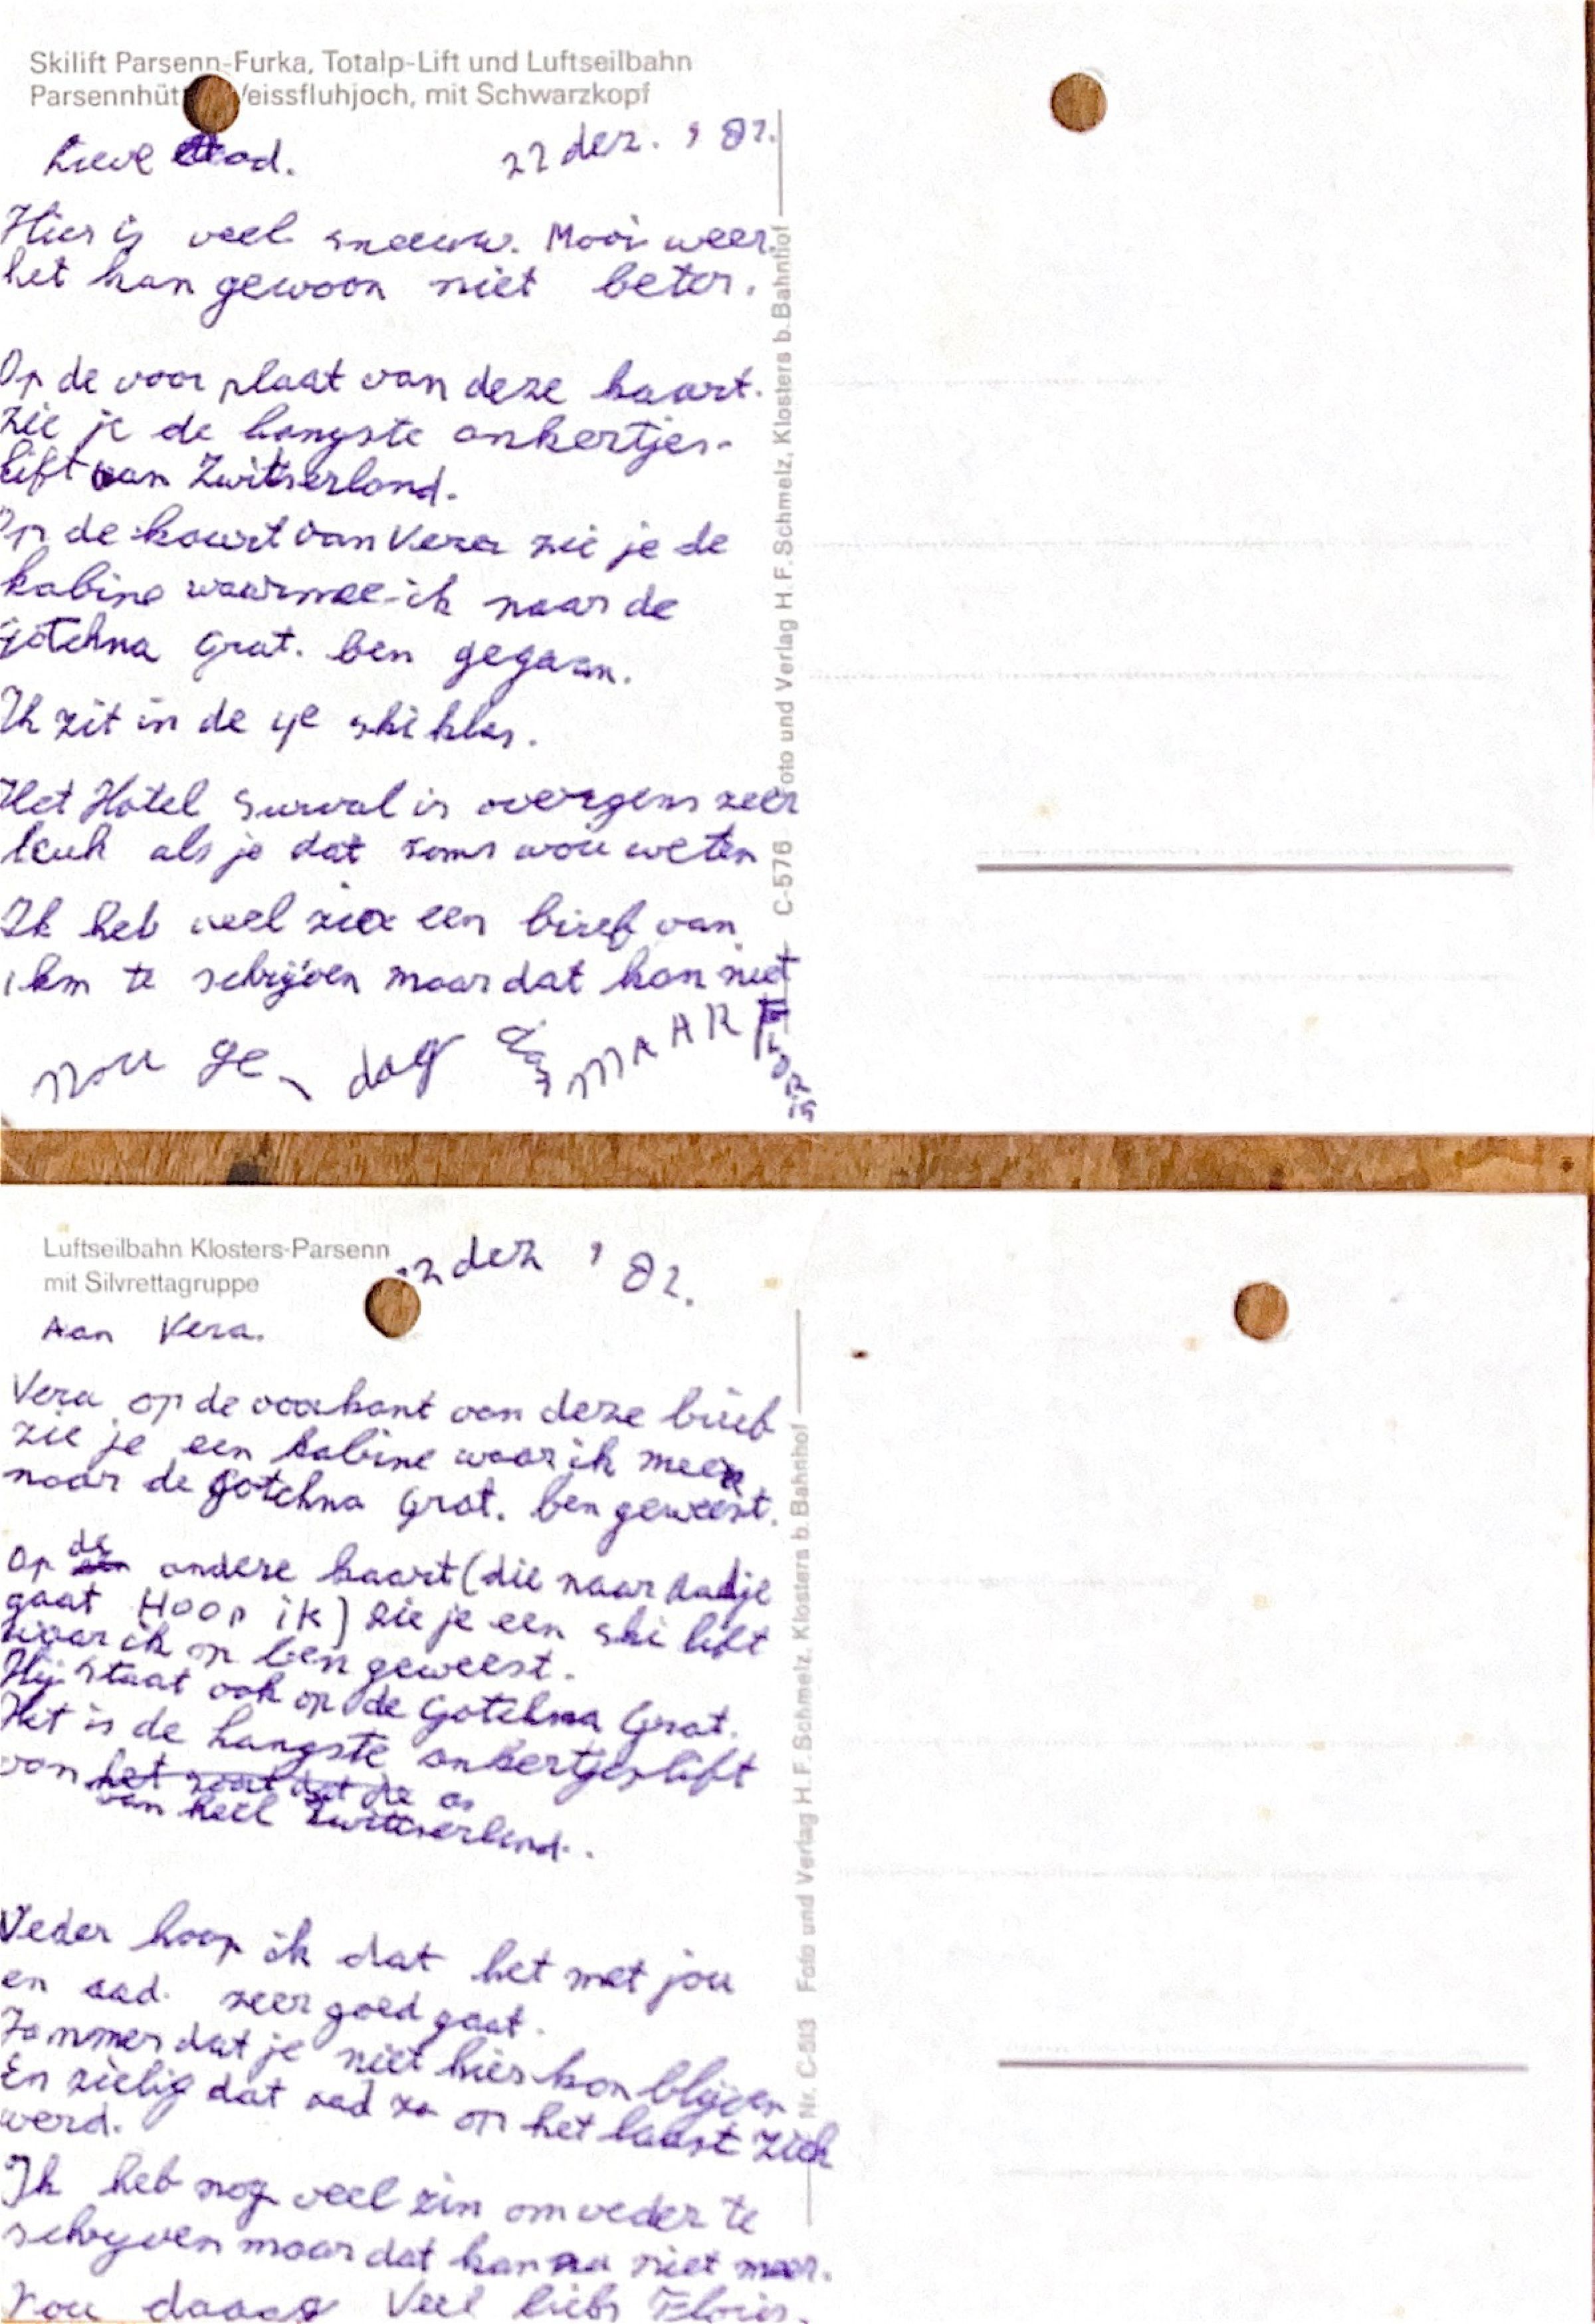 Skilift Parsenn-Furka, Totalp-Lift und Luftseilbahn
Parsennhüt eissfluhjoch, mit Schwarzkopf
Lieve Aad. 22 dez. '82.
Hier is veel sneeuw. Mooi weer.
het kan gewoon niet beter.
Op de voor plaat van deze kaart.
zie je de langste ankertjes-
lift van Zwitserland.
Op de kaart van Vera zie je de
kabine waarmee ik naar de
Gotchna Grat. ben gegaan.
Ik zit in de 4e ski klas.
Het Hotel Surval is overigens zeer
leuk als je dat soms wou weten
Ik heb veel zin een brief van
1 km te schrijven maar dat kan niet
nou ge dag MAAR
Floris
C-576 Foto und Verlag H. F. Schmelz, Klosters b. Bahnhof
Luftseilbahn Klosters-Parsenn
mit Silvrettagruppe
22 dez '82.
Aan Vera.
Vera op de voorkant van deze brief
zie je een kabine waar ik mee
naar de Gotchna Grat. ben geweest.
Op de andere kaart (die naar Aadje
gaat HOOP ik) zie je een ski lift
waar ik op ben geweest.
Hij staat ook op de Gotchna Grat.
Het is de langste ankertjeslift
van het
van heel Zwittserland.
Veder hoop ik dat het met jou
en aad. zeer goed gaat.
Jammer dat je niet hier kon blijven
En zielig dat aad zo op het laast ziek
werd.
Ik heb nog veel zin om veder te
schrijven maar dat kan nu niet meer.
Nou daaag Veel liefs Floris.
Nr. C-513 Foto und Verlag H. F. Schmelz, Klosters b. Bahnhof